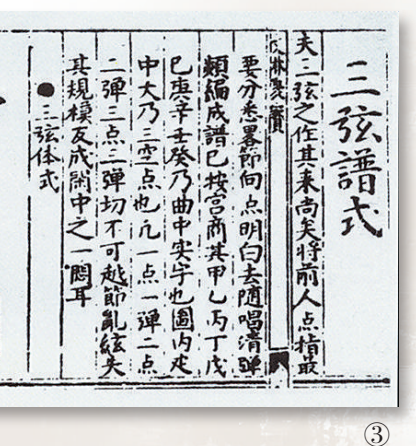 三弦譜式
夫三弦之作其来尚矣将前人点指最
要分悉畧節句点明白去随唱清弹
類編成譜已按宫商其甲乙丙丁戊
已庚辛壬癸乃曲中实字也圖内疋
中大乃三空点也凢一点一弹二点
二弹三点三弹切不可趂節亂絃失
其規模友成閑中之一悶耳
●三弦体式
③